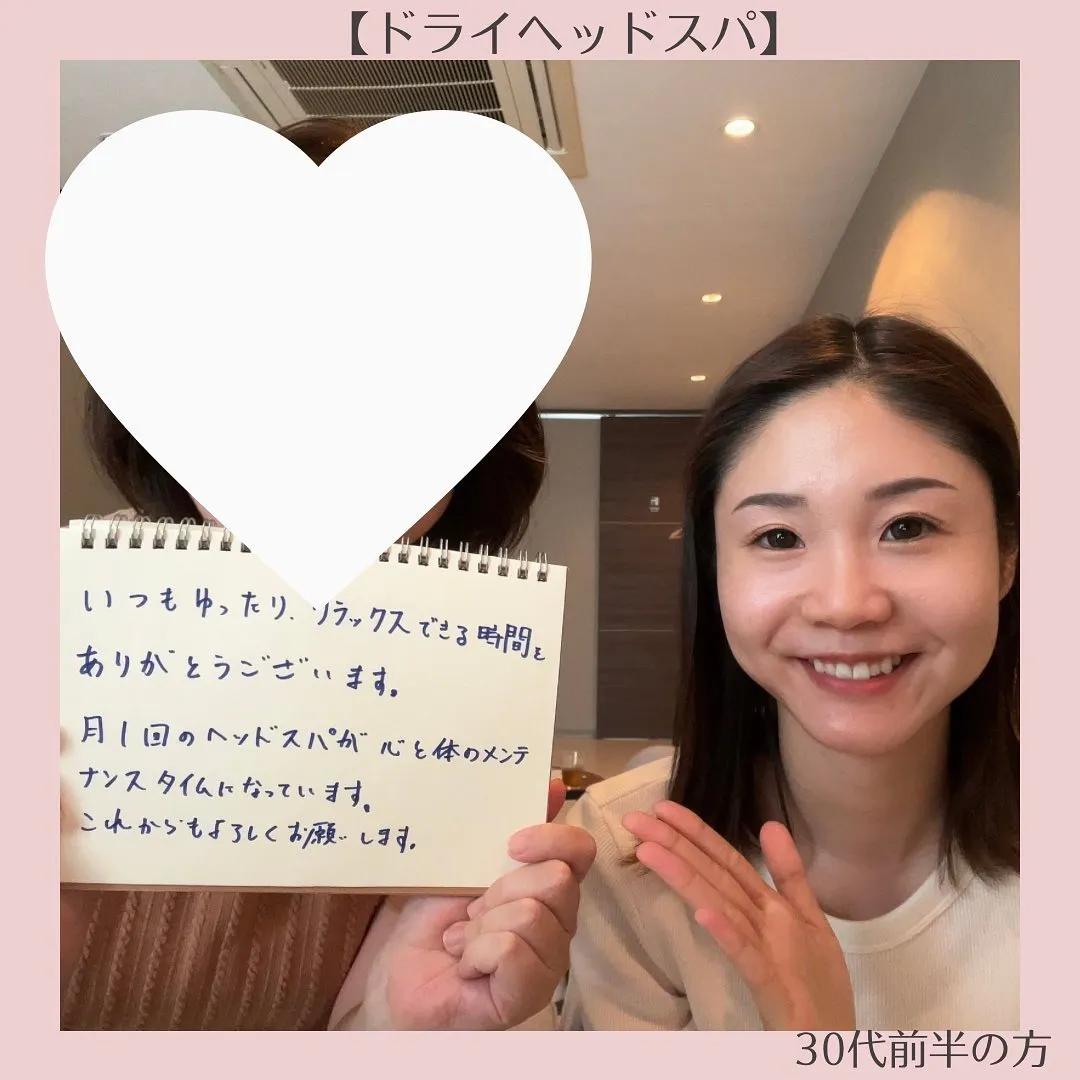 【ドライヘッドスパ】
いつもゆったり、リラックスできる時間を
ありがとうございます。
月1回のヘッドスパが心と体のメンテ
ナンスタイムになっています。
これからもよろしくお願いします。
30代前半の方